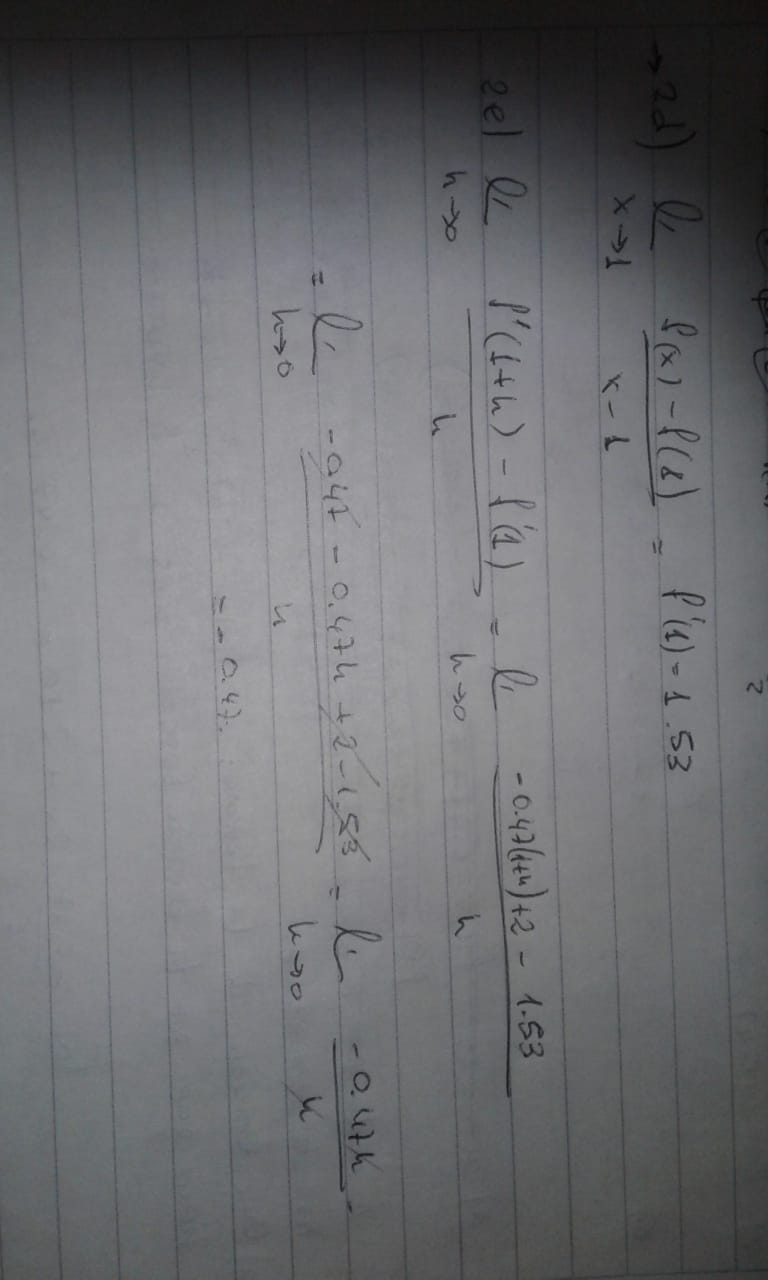 2
→ 2d) li x→1 f(x) - f(1) / x - 1 = f'(1) = 1.53
2e) li h→0 f'(1+h) - f'(1) / h = li h→0 -0.47(1+h)+2 - 1.53 / h
= li h→0 -0.47 - 0.47h + 2 - 1.53 / h = li h→0 -0.47h / h =
= -0.47.